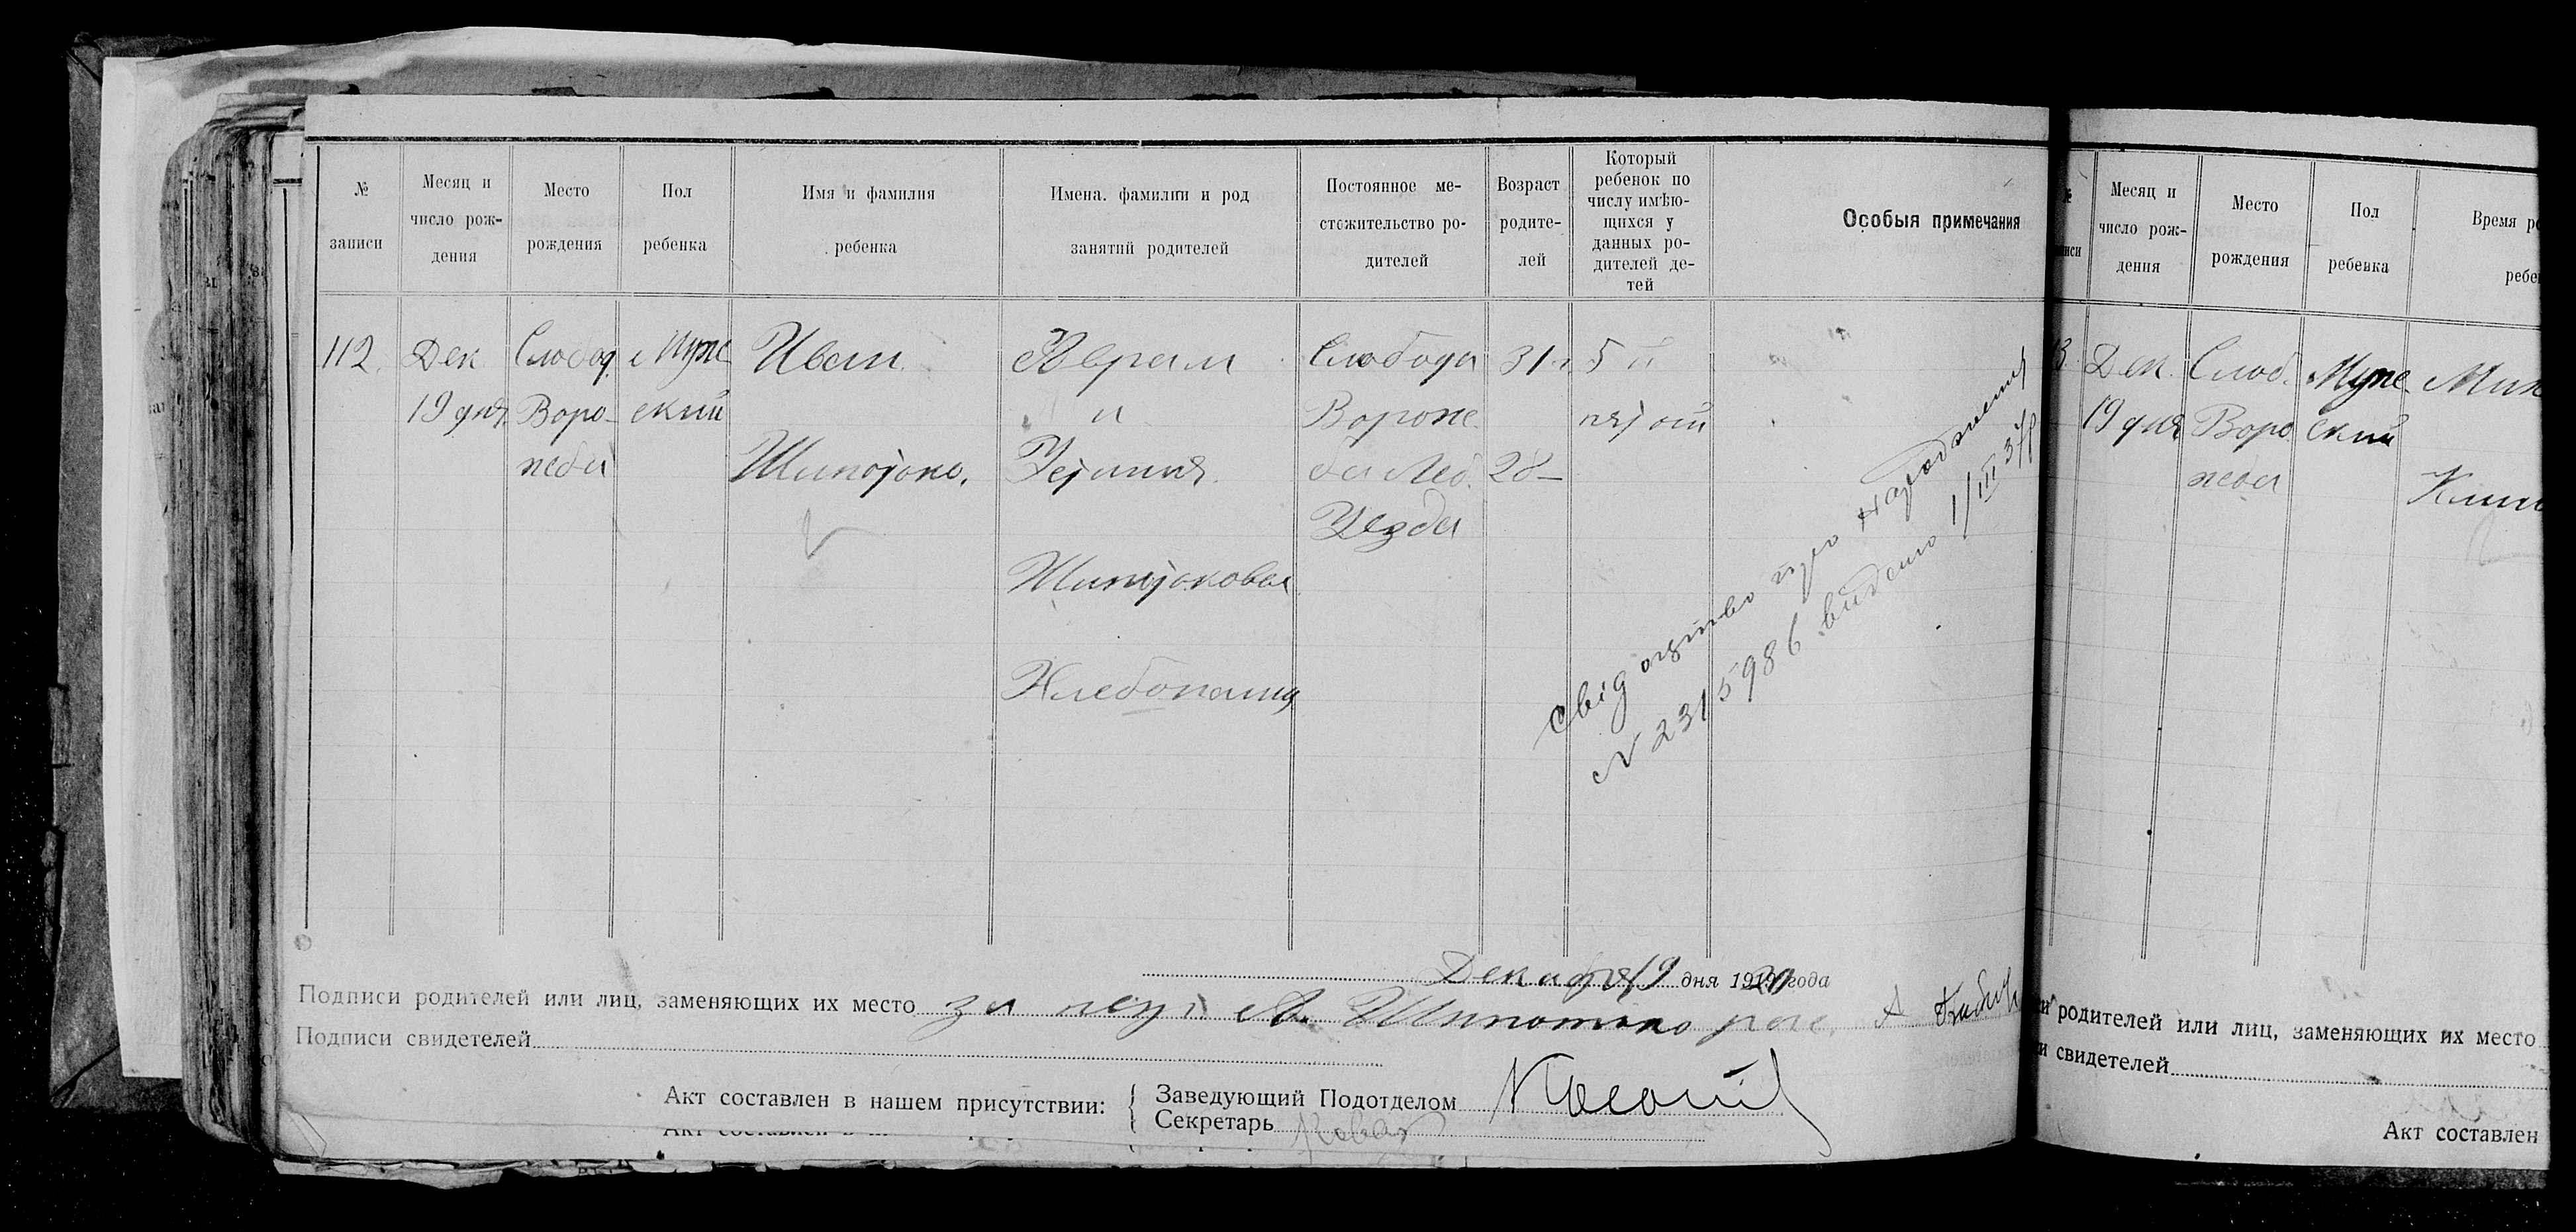 № записи
Месяц и число рож- дения
Место рождения
Пол ребенка
Имя и фамилия ребенка
Имена. фамилии и род занятий родителей
Постоянное ме- стожительство ро- дителей
Возраст родите- лей
Который ребенок по числу имѣю- щихся у данных ро- дителей де- тей
Особыя примечания
112
Дек 19 дня
Слобод. Воро- жеба
Муже ский
Иван Шипотоко.
Аврам и Устиния Шипотокова Хлебопашц
Слобода Вороже ба Леб. Уезда
31 г 28 –
5 й пятой
свідоцтво про народження
N 2315986 видано 1/III 37 р
Декабря 19 дня 1920 года
Подписи родителей или лиц, заменяющих их место за негр А. Шипотоко рос. А
Подписи свидетелей
Акт составлен в нашем присутствии:
Заведующий Подотделом
Секретарь
Месяц и число рож- дения
Место рождения
Пол ребенка
Время
Дек. 19 дня
Слоб. Воро жеба
Муже ский
родителей или лиц, заменяющих их место
и свидетелей
Акт составлен